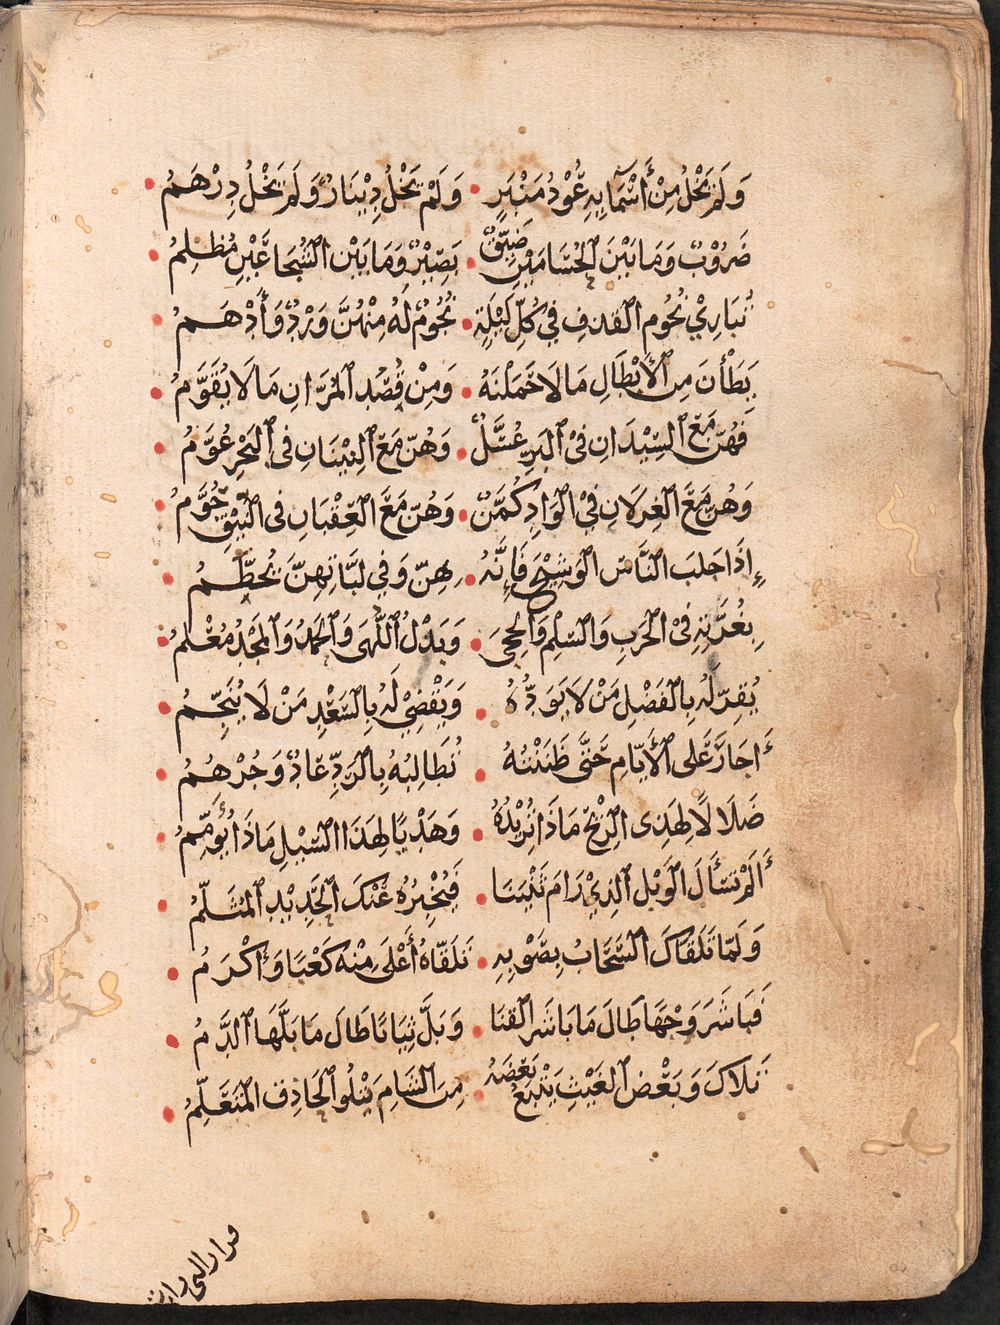 وَلَمْ يَخْلُ مِنْ أَسْمَايِهِ عُوْدُ مَنْبَرٍ • وَلَمْ يَخْلُ دِيْنَارٌ وَلَمْ يَخْلُ دِرْهَمُ •
ضَرُوْبٌ وَمَا بَيْنَ الْحُسَامَيْنِ ضَيِّقٌ • بَصِيْرٌ وَمَا بَيْنَ الشُّجَاعَيْنِ مُظْلِمُ •
تُبَارِيْ نُجُوْمَ الْقَذْفِ فِيْ كُلِّ لَيْلَةٍ • نُجُوْمٌ لَهُ مِنْهُنَّ وَرْدٌ وَأَدْهَمُ •
يَطَأْنَ مِنَ الْأَبْطَالِ مَا لَا حَمَلْنَهُ • وَمِنْ قُصُدِ الْمُرَّانِ مَا لَا يُقَوَّمُ •
فَهُنَّ مَعَ السِّيْدَانِ فِيْ الْبَرِّ عُسَّلٌ • وَهُنَّ مَعَ النِيْنَانِ فِي الْبَحْرِ عُوَّمُ •
وَهُنَّ مَعَ الْغِزْلَانِ فِيْ الْوَادِ كُمَّنٌ • وَهُنَّ مَعَ الْعِقْبَانِ فِي النِّيْقِ حُوَّمُ •
إِذَا جَلَبَ النَّاسُ الْوَشِيْجَ فَإِنَّهُ • بِهِنَّ وَفِي لَبَّاتِهِنَّ يُحَطَّمُ •
بِغُرَّتِهِ فِيْ الْحَرْبِ وَالسِّلْمِ وَالْحِجَى • وَبَذْلُ اللُّهَى وَالْحَمْدُ وَالْمَجْدُ مُعْلَمُ •
يُقِرُّ لَهُ بِالْفَضْلِ مَنْ لَا يَوَدُّهُ • وَيَقْضِيْ لَهُ بِالسَّعْدِ مَنْ لَا يُنَجِّمُ •
أَجَارَ عَلَى الْأَيَّامِ حَتَّى ظَنَنْتُهُ • تُطَالِبُهُ بِالرَدِّ عَادٌ وَجُرْهُمُ •
ضَلَالًا لِهَذِى الرِّيْحِ مَاذَا تُرِيْدُهُ • وَهَدْيًا لِهَذَا السَّيْلِ مَاذَا يُؤَمِّمُ •
أَلَمْ تَسْأَلَ الْوَبْلَ الَّذِيْ رَامَ ثَنْيَنَا • فَيُخْبِرُهُ عَنْكَ الْحَدِيْدُ الْمُثَلَّمُ •
وَلَمَّا تَلَقَّاكَ السَّحَابُ بِصَوْبِهِ • تَلَقَّاهُ أَعْلَى مِنْهُ كَعْبًا وَأَكْرَمُ •
فَبَاشَرَ وَجْهًا طَالَ مَا بَاشَرَ الْقَنَا • وَبَلَّ ثِيَابًا طَالَ مَا بَلَّهَا الدَّمُ •
تَلَاكَ وَبَعْضُ الْغَيْثِ يَتْبَعُ بَعْضَهُ • مِنَ الشَّامِ يَتْلُو الْحَاذِقَ الْمُتَعَلِّمُ •
فزار التى زارت